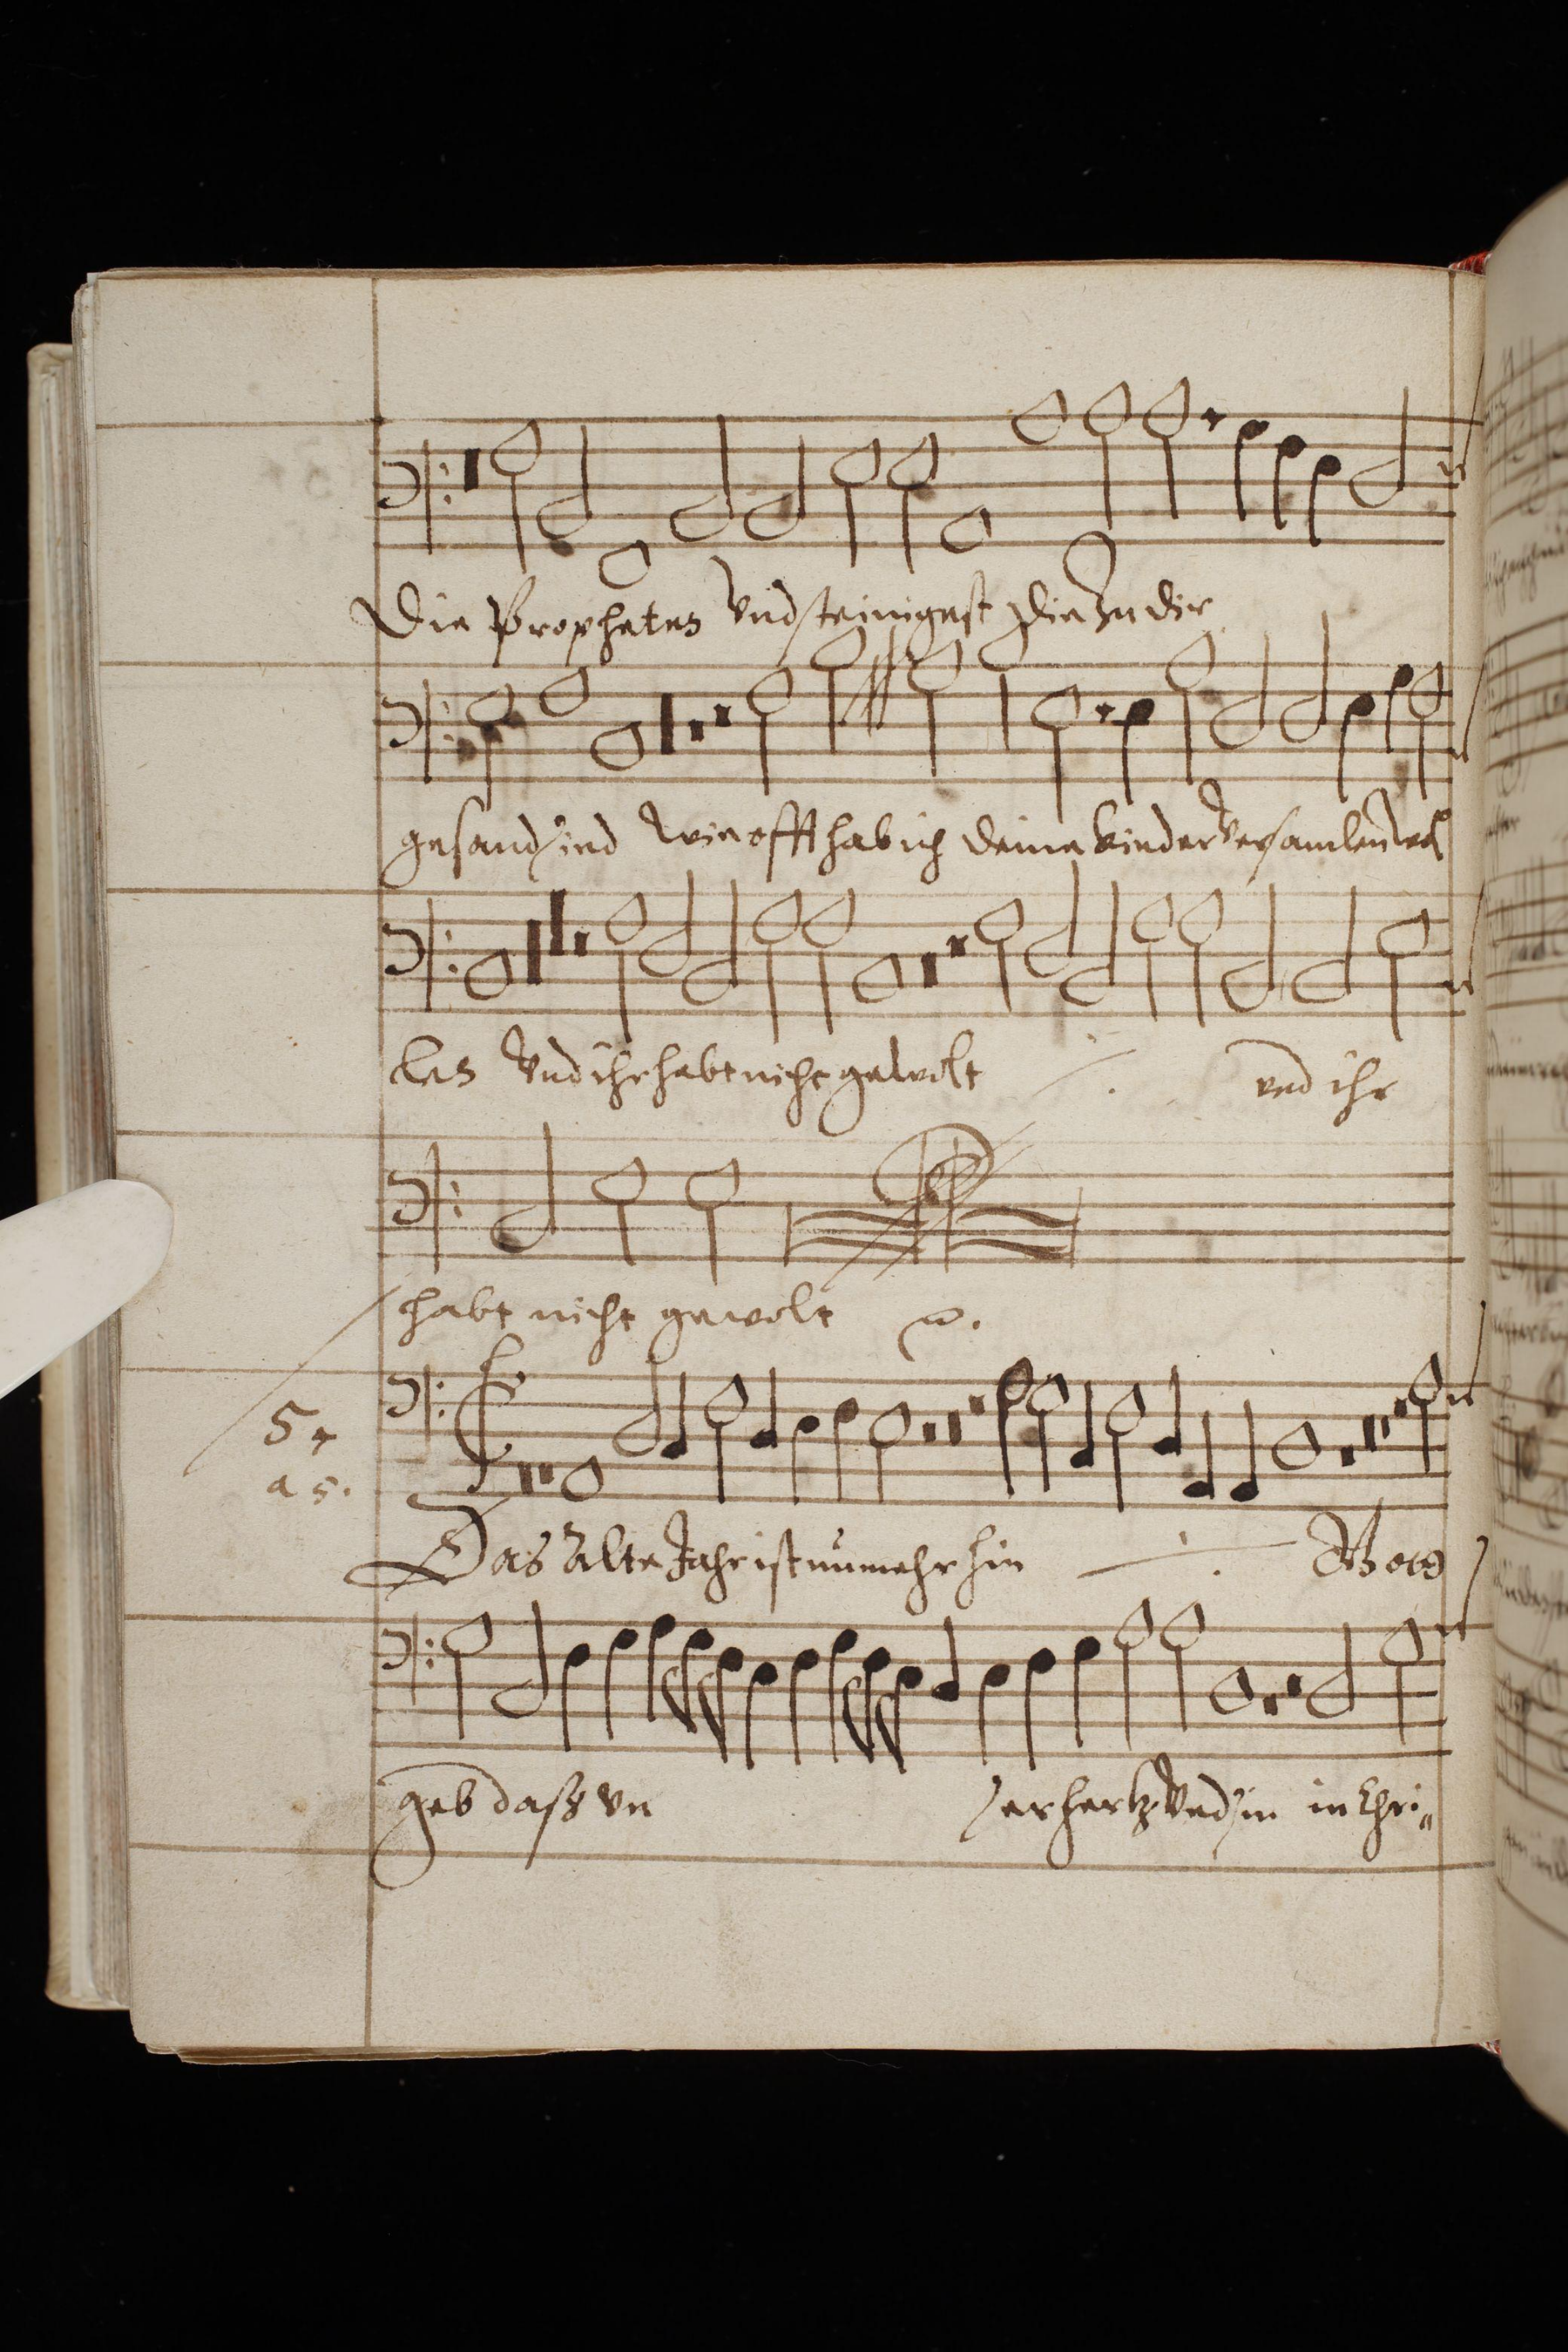 Die Propheten Vnd steinigest Die Zu dir
gesand sind wie offt hab ich deine kinder versamlen wol
len Vnd ihr habt nicht gewolt ./. vnd ihr
habt nicht gewolt
5
a 5.
Das alte Jahr ist nunmehr hin ./.
geb daß vn ser hertz vnd sin in Chri„